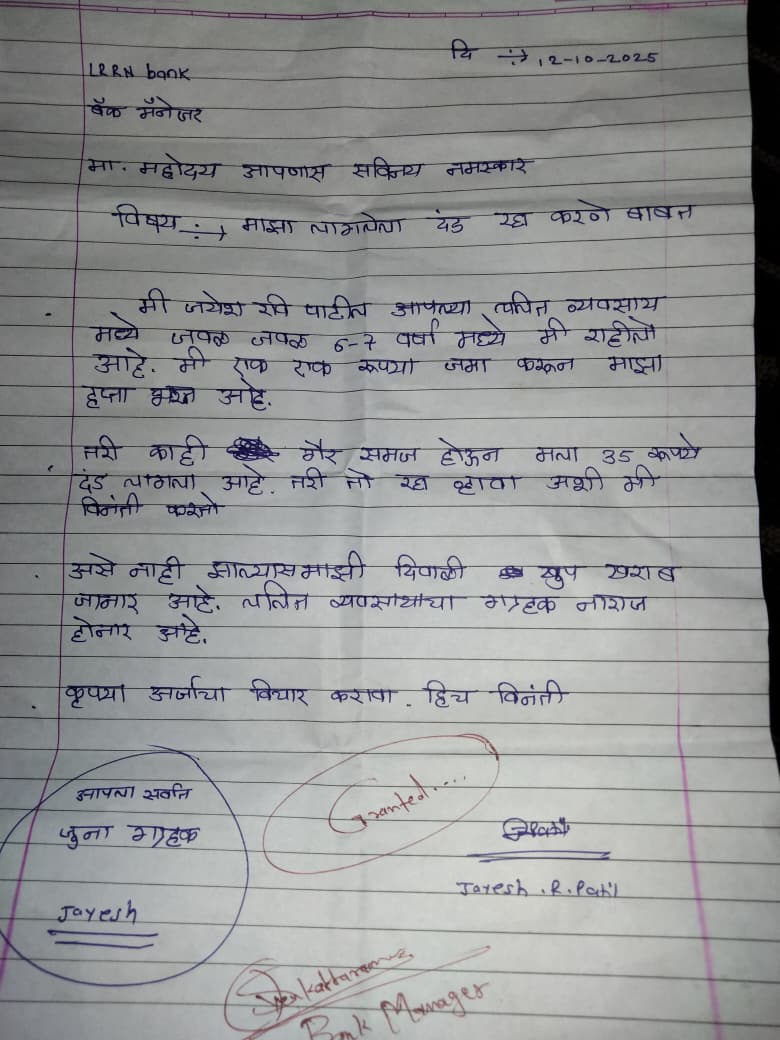 दि ÷→ 12-10-2025
LRRN bank
बॅक मॅनेजर
मा. महोदय आपणास सविनय नमस्कार
विषय ÷→ माझा लागलेला दंड रद्य करणे बाबत
मी जयेश रवि पाटील आपल्या ललित व्यवसाय
मध्ये जवळ जवळ 6-7 वर्षा मध्ये मी राहीलो
आहे. मी एक एक रूपया जमा करून माझा
हप्ता भरत आहे.
तरी काही गैर समज होऊन मला 35 रूपये
दंड लागला आहे. तरी तो रद्य व्हावा अशी मी
विनंती करतो
असे नाही झाल्यास माझी दिवाळी खुप खराब
जानार आहे. ललित व्यवसायाचा ग्राहक नाराज
होनार आहे.
कृपया अर्जाचा विचार करावा. हिच विनंती
आपला सर्वात
जुना ग्राहक
Jayesh
Granted....
JRPatil
Jayesh.R.Patil
Bank Manager